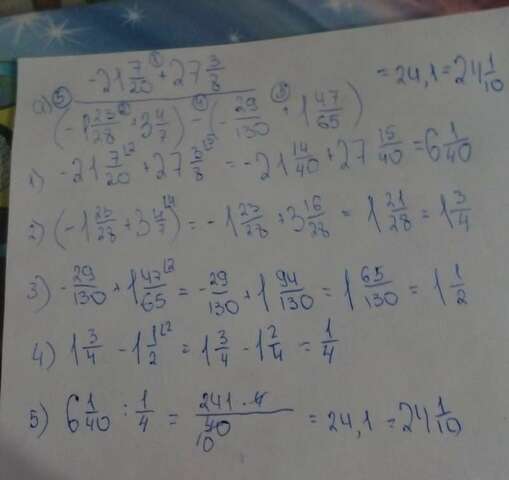 а) (-21 7/20 + 27 3/8) / ((-1 23/28 + 3 4/7) - (-29/130 + 1 47/65)) = 24,1 = 24 1/10
1) -21 7/20 + 27 3/8 = -21 14/40 + 27 15/40 = 6 1/40
2) (-1 23/28 + 3 4/7) = -1 23/28 + 3 16/28 = 1 21/28 = 1 3/4
3) -29/130 + 1 47/65 = -29/130 + 1 94/130 = 1 65/130 = 1 1/2
4) 1 3/4 - 1 1/2 = 1 3/4 - 1 2/4 = 1/4
5) 6 1/40 : 1/4 = 241·4/40 = 24,1 = 24 1/10